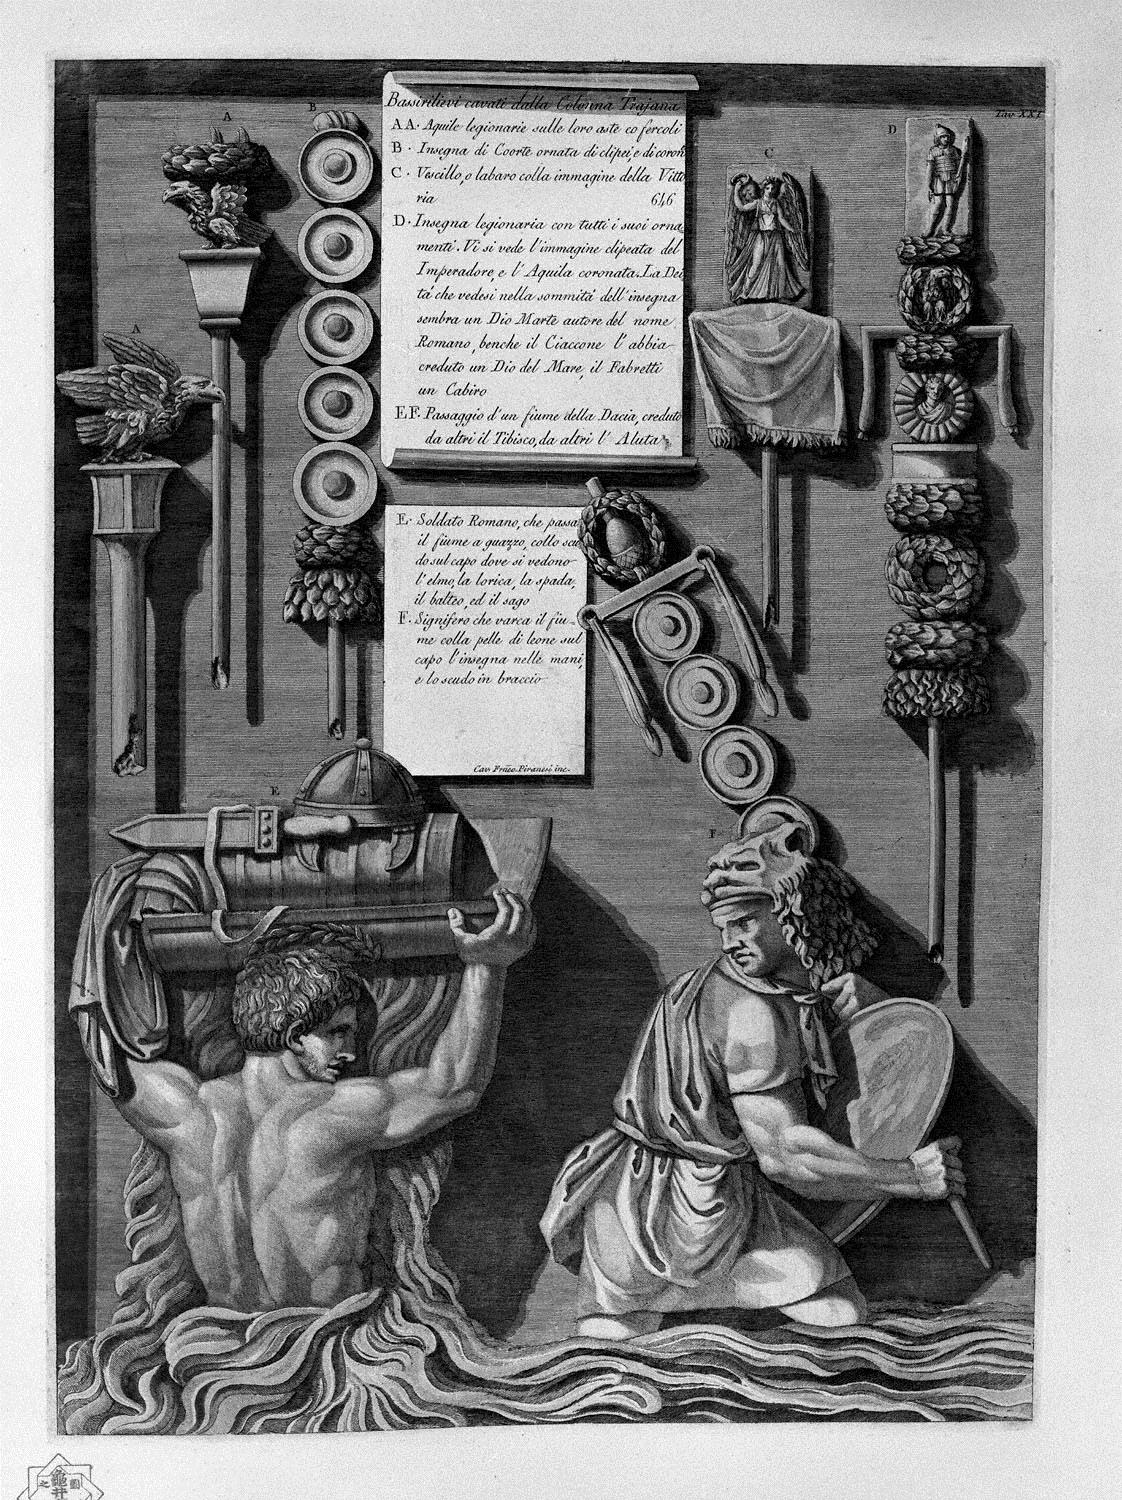 Tav. XXI
Bassirilievi cavati dalla Colonna Trajana
AA. Aquile legionarie sulle loro aste co fercoli
B. Insegna di Coorte ornata di clipei, e di coron
C. Vescillo, o labaro colla immagine della Vitto
ria 646
D. Insegna legionaria con tutti i suoi orna
menti. Vi si vede l'immagine clipeata del
Imperadore, e l'Aquila coronata. La Dei
tá che vedesi nella sommitá dell'insegna
sembra un Dio Marte autore del nome
Romano, benche il Ciaccone l'abbia
creduto un Dio del Mare, il Fabretti
un Cabiro
EF. Passaggio d'un fiume della Dacia, creduto
da altri il Tibisco, da altri l'Aluta
E. Soldato Romano, che passa
il fiume a guazzo, collo scu
do sul capo dove si vedono
l'elmo, la lorica, la spada,
il balteo, ed il sago
F. Signifero che varca il fiu
me colla pelle di leone sul
capo l'insegna nelle mani,
e lo scudo in braccio
Cav. Franco. Piranesi inc.
A
B
A
C
D
E
F